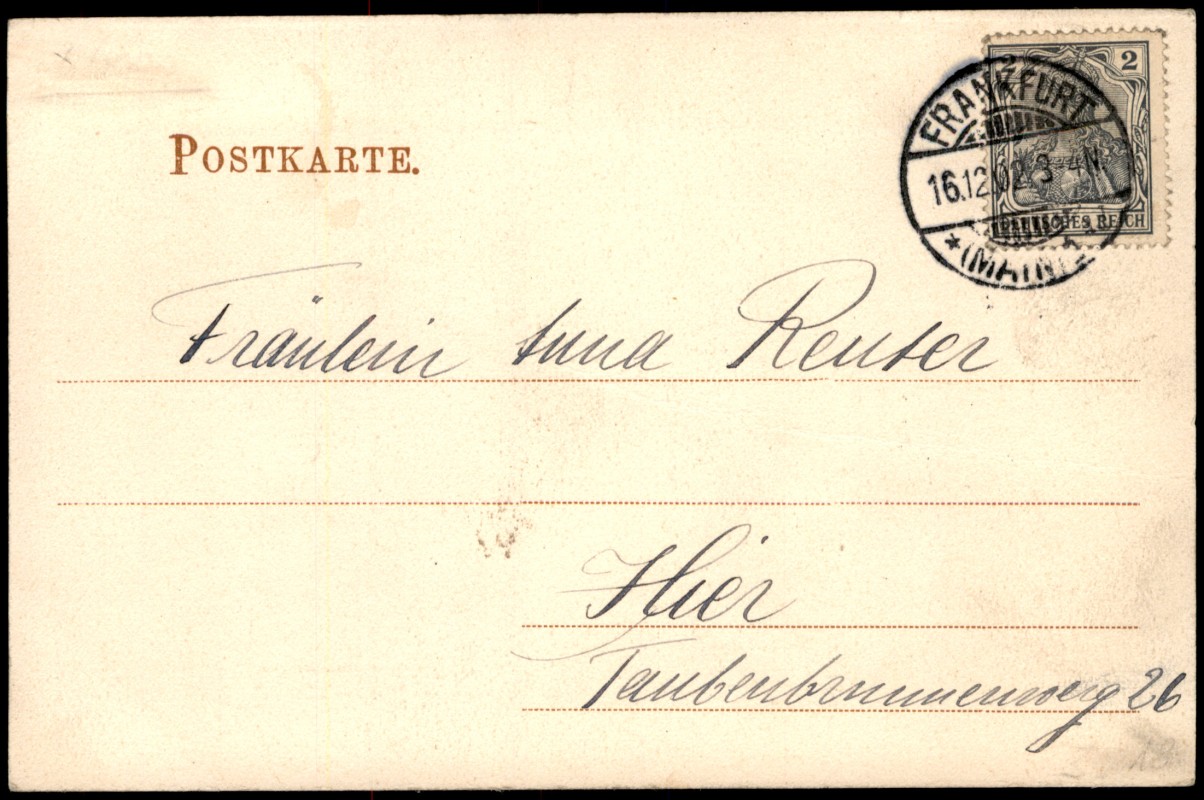 POSTKARTE.
2 2
FRANKFURT
16.12.02. 3-4N.
DEUTSCHES REICH
* (MAIN)
Fräulein Anna Reuter
Hier
Taubenbrunnenweg 26